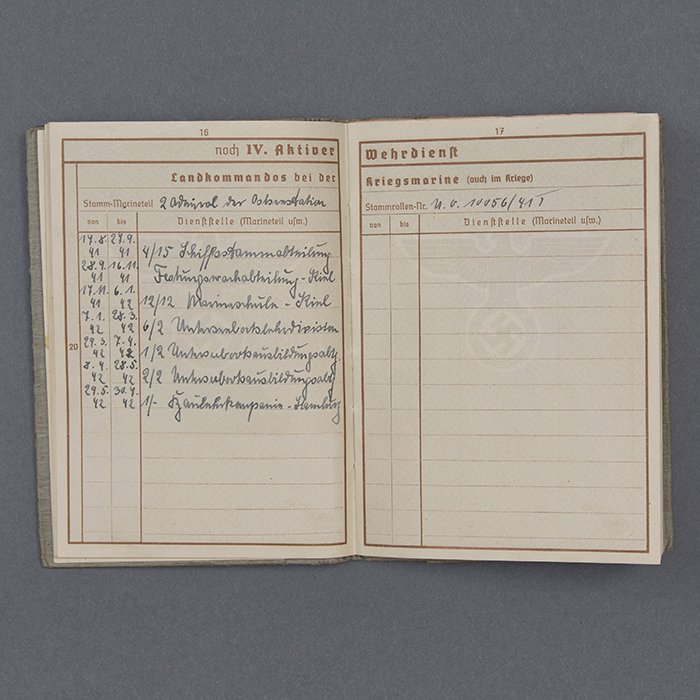 16
noch IV. Aktiver
Landkommandos bei der
Stamm-Marineteil 2 Admiral der Ostseestation
von bis Dienststelle (Marineteil usw.)
17.8. 27.9.
41 41 4/15 Schiffsstammabteilung
28.9. 16.11.
41 41 Festungswachabteilung - Kiel
17.11. 6.1.
41 42 12/12 Marineschule - Kiel
7.1. 28.3.
42 42 6/2 Unterseebootslehrdivision
29.3. 7.4.
20 42 42 1/2 Unterseebootsausbildungsabtg.
8.4. 28.5.
42 42 2/2 Unterseebootsausbildungsabtg.
29.5. 30.9.
42 42 1/- Baulehrkompanie - Hamburg
17
Wehrdienst
Kriegsmarine (auch im Kriege)
Stammrollen-Nr. U.O. 10056/41
von bis Dienststelle (Marineteil usw.)